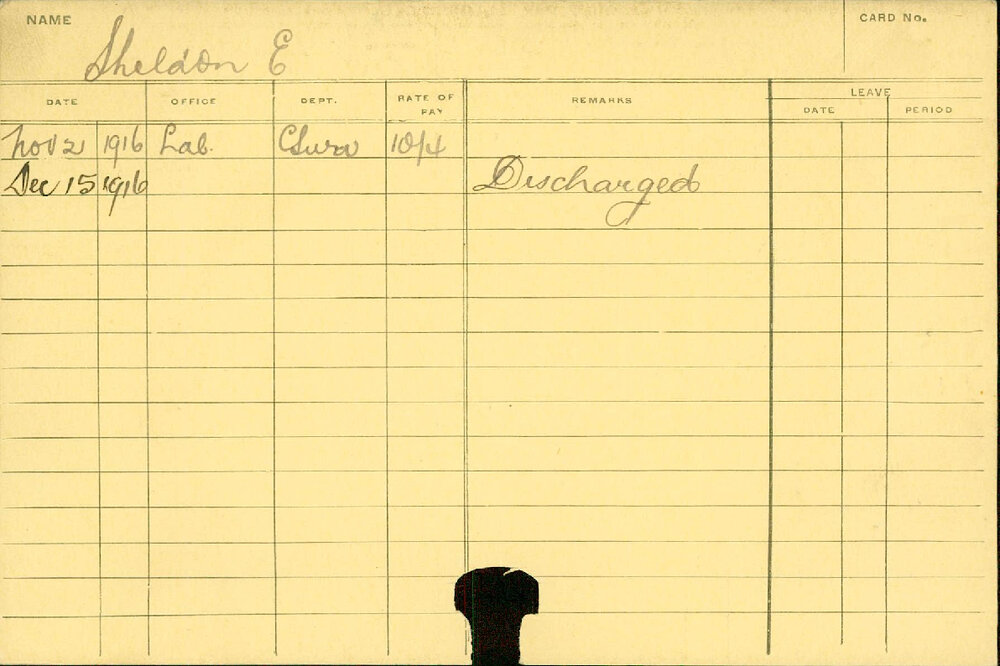 NAME
CARD No.
Sheldon E
DATE OFFICE DEPT. RATE OF PAY REMARKS LEAVE
DATE PERIOD
Nov 2 1916 Lab. 10/4
Dec 15 1916 Discharged